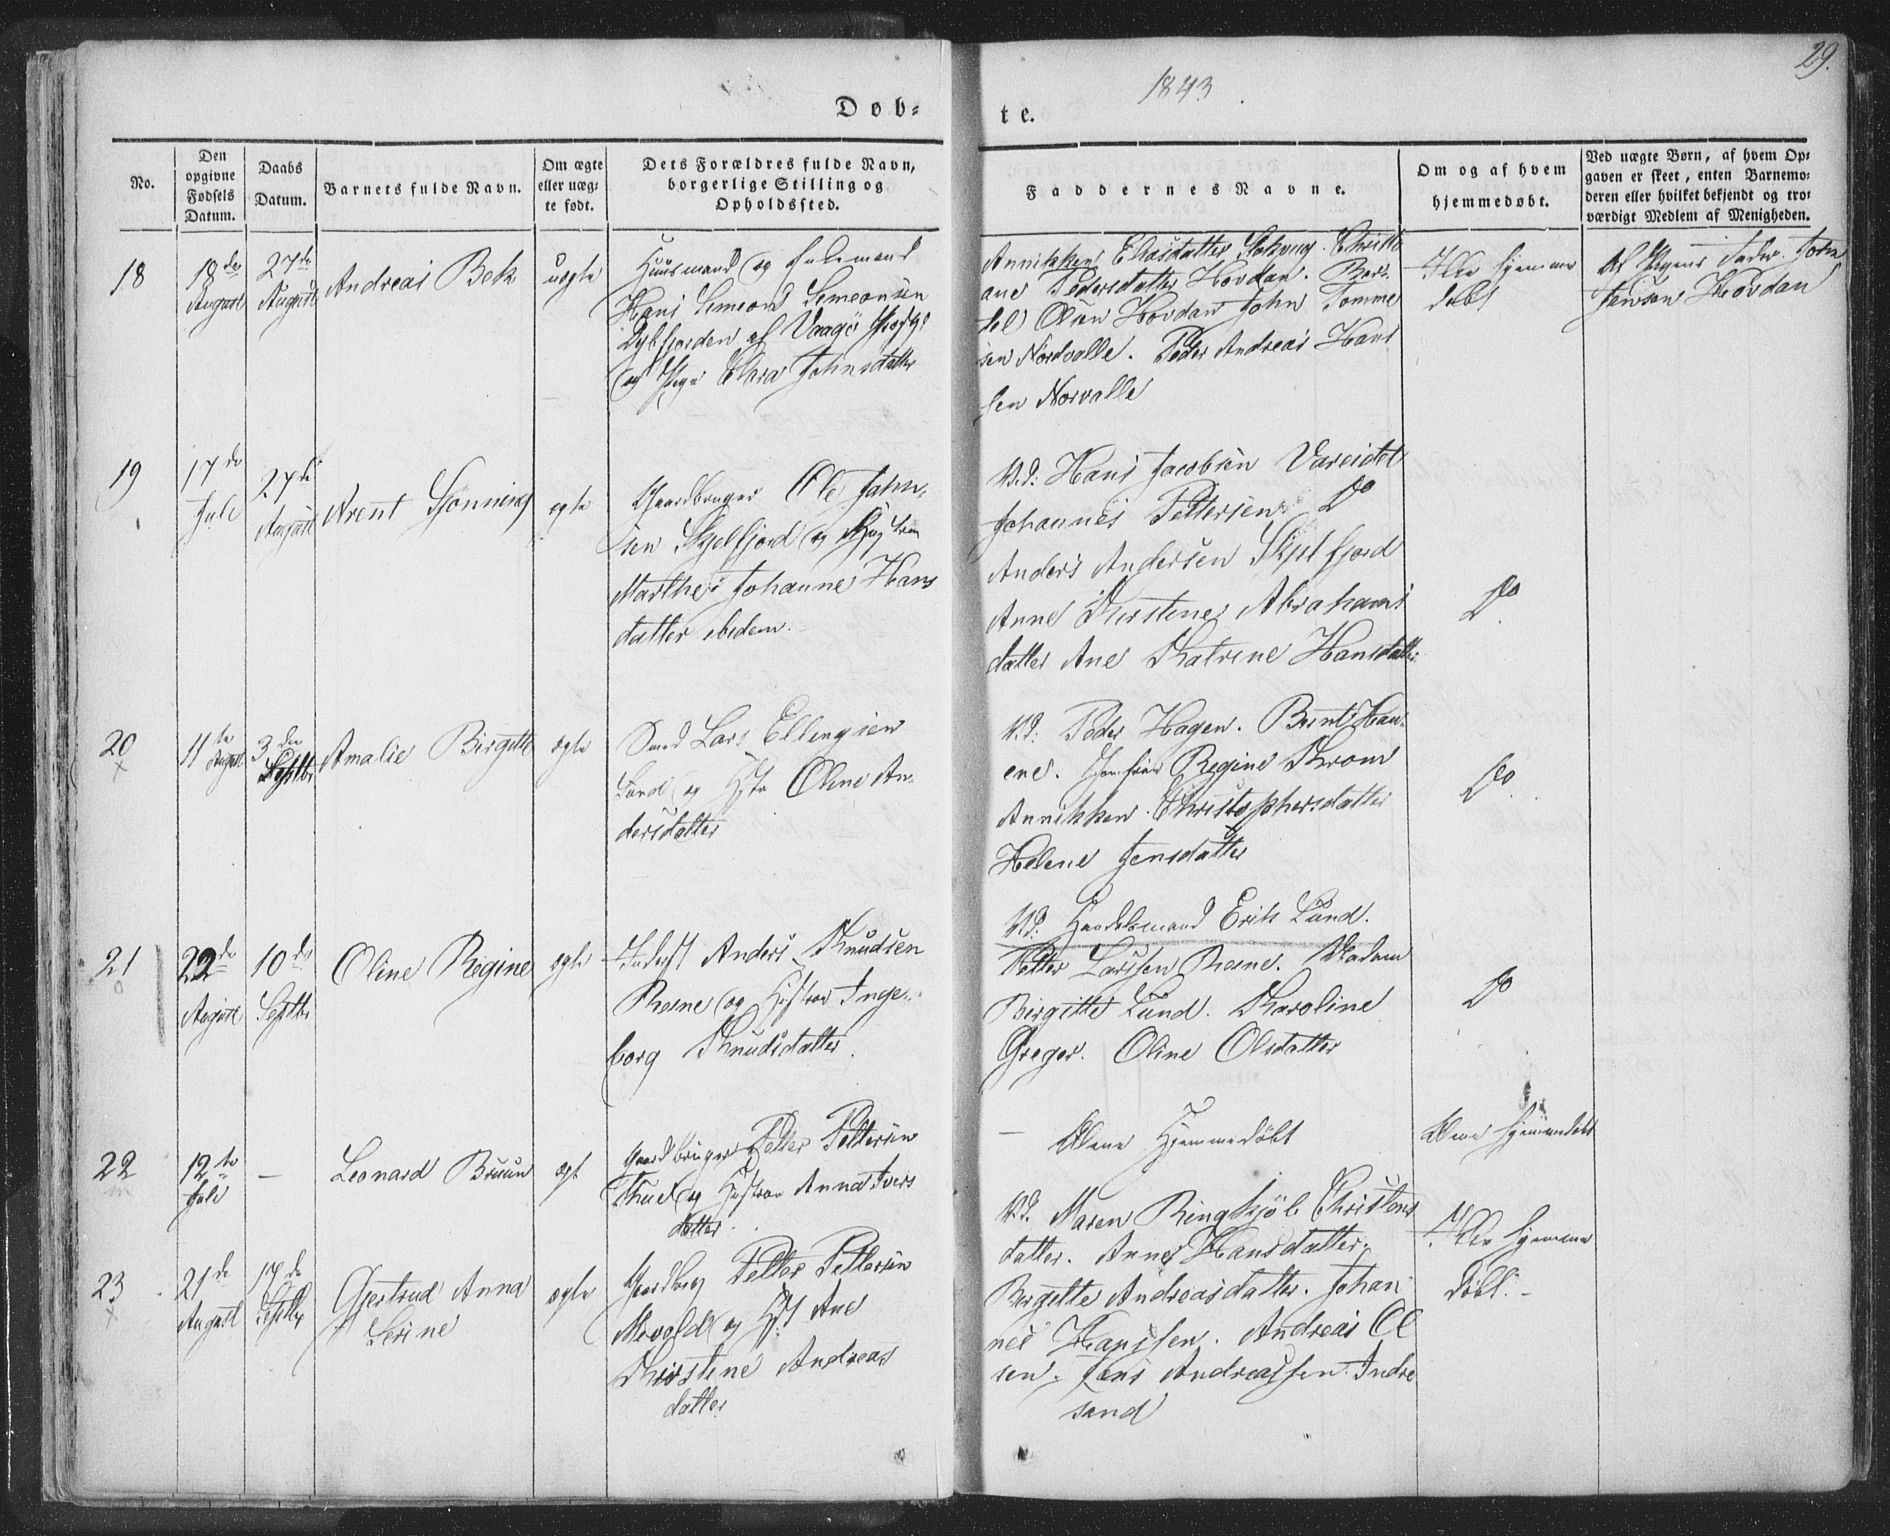 29.
1843
Døb-
te.
No.
Den opgivne Fødsels Datum.
Daabs Datum.
Barnets fulde Navn.
Om ægte eller uæg-
te født.
Dets Forældres fulde Navn,
borgerlige Stilling og
Opholdssted.
Faddernes Navne.
Om og af hvem
hjemmedøbt.
Ved uægte Børn, af hvem Op-
gaven er skeet, enten Barnemo-
deren eller hvilket bekjendt og tro-
værdigt Medlem af Menigheden.
18
18de
August
27de
August
Andreas Bek
uægte
Huusmand og
Hans Simeon Simeonsen
Dybfjorden af Vaagø
og Pige Clara Johnsdatter
Annikken Eliasdatter Christi
ane Pedersdatter Hovdan.
Olsen Hovdan John Tomme
sen Nordvalle. Peder Andreas Hans
sen Norvalle
Ikke hjemme
døbt
Af Pigens Fader John
Jensen Hovdan
19
17de
Juli
27de
August
Arent Sjønning
ægte
Gaardbruger Ole John-
sen Skjelfjord og
Marthe Johanne Hans
datter ibidem.
Hans Jacobsen Vareidet
Johannes Pettersen Do
Anders Andersen Skjelfjord
Anne Kirstine Abrahams
datter Ane Katrine Hansdatter
Do
20
x
11te
August
3die
Septbr
Amalie Birgitte
ægte
Lars Ellingsen
Sund og Hstr Oline An-
dersdatter
Peder Hagen. Bernt Han-
Jomfrue Regine Krom
Annikken Christophersdatter
Helene Jensdatter
Do
21
o
22de
August
10de
Septbr
Oline Regine
ægte
Inderst Anders Knudsen
Reine og Hustrue Inge-
borg Knudsdatter.
Handelsmand Erik Lund.
Petter Larssen Reine. Madam
Birgitte Lund. Karoline
Greger. Oline Olsdatter
Do
22
12te
Juli
—
Leonard Bruun
ægt
Gaardbruger Petter Pettersen
og Hustrue Anna Ivers
datter.
— Hjemmedøbt
hjemmedøbt
23
x
21de
August
17de
Septbr
Gjertrud Anna
Serine
ægte
Gaardbrg Petter Pettersen
og Hst Ane
Kirstine Andreas
datter
Maren Ringkjøb Christens
datter. Anne Hansdatter.
Birgitte Andreasdatter. Johan
nes Hanssen. Andreas Ol
sen. Jens Andreassen Indre
sand
Ikke hjemme
døbt. —